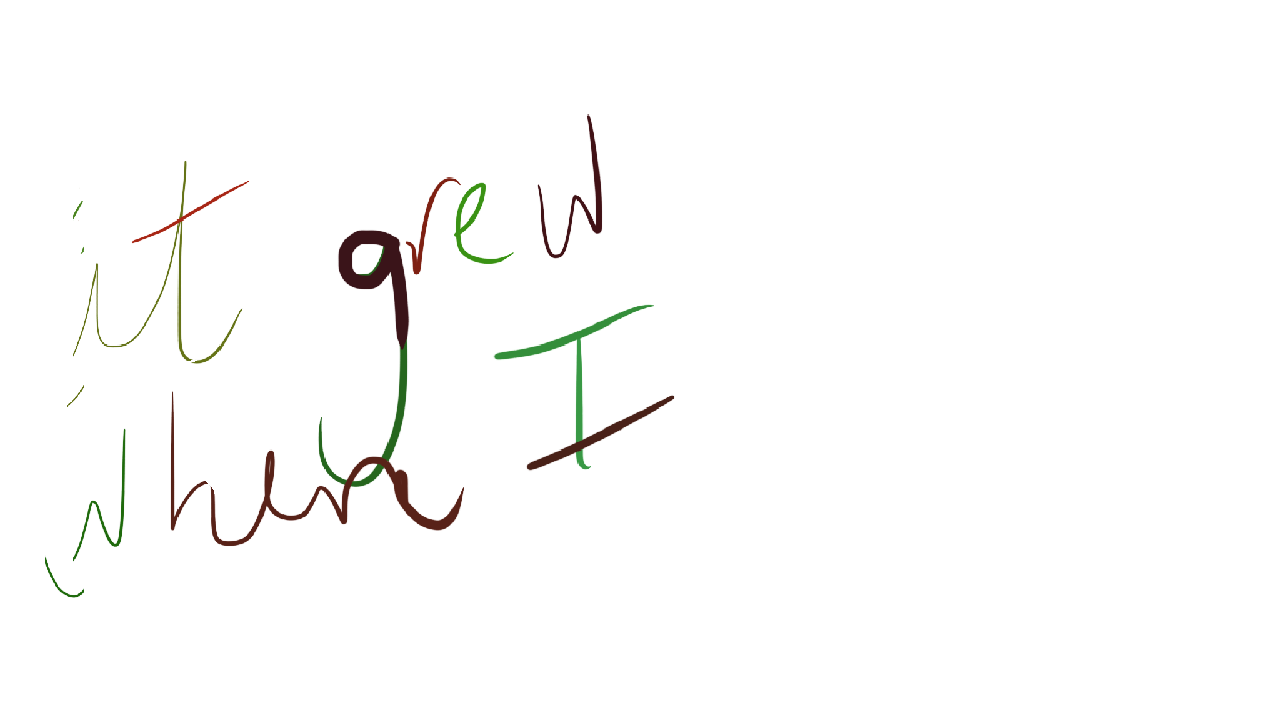 it grew
when I